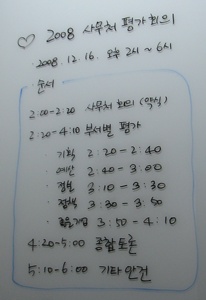 ♡ 2008 사무처 평가회의
· 2008. 12. 16. 오후 2시 ~ 6시
· 순서
2:00-2:20 사무처 회의 (약식)
2:20-4:10 부서별 평가
· 기획 2:20-2:40
· 예산 2:40-3:00
· 정보 3:10-3:30
· 정책 3:30-3:50
· 3:50-4:10
4:20-5:00 종합토론
5:10-6:00 기타안건